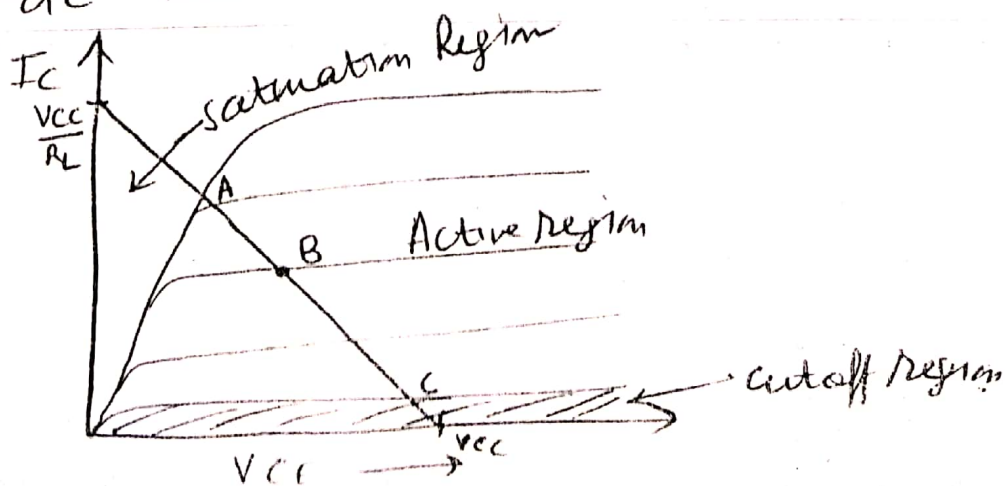 Ic
VCC
RL
Saturation Region
A
B
Active region
C
cutoff region
VCC
VCC